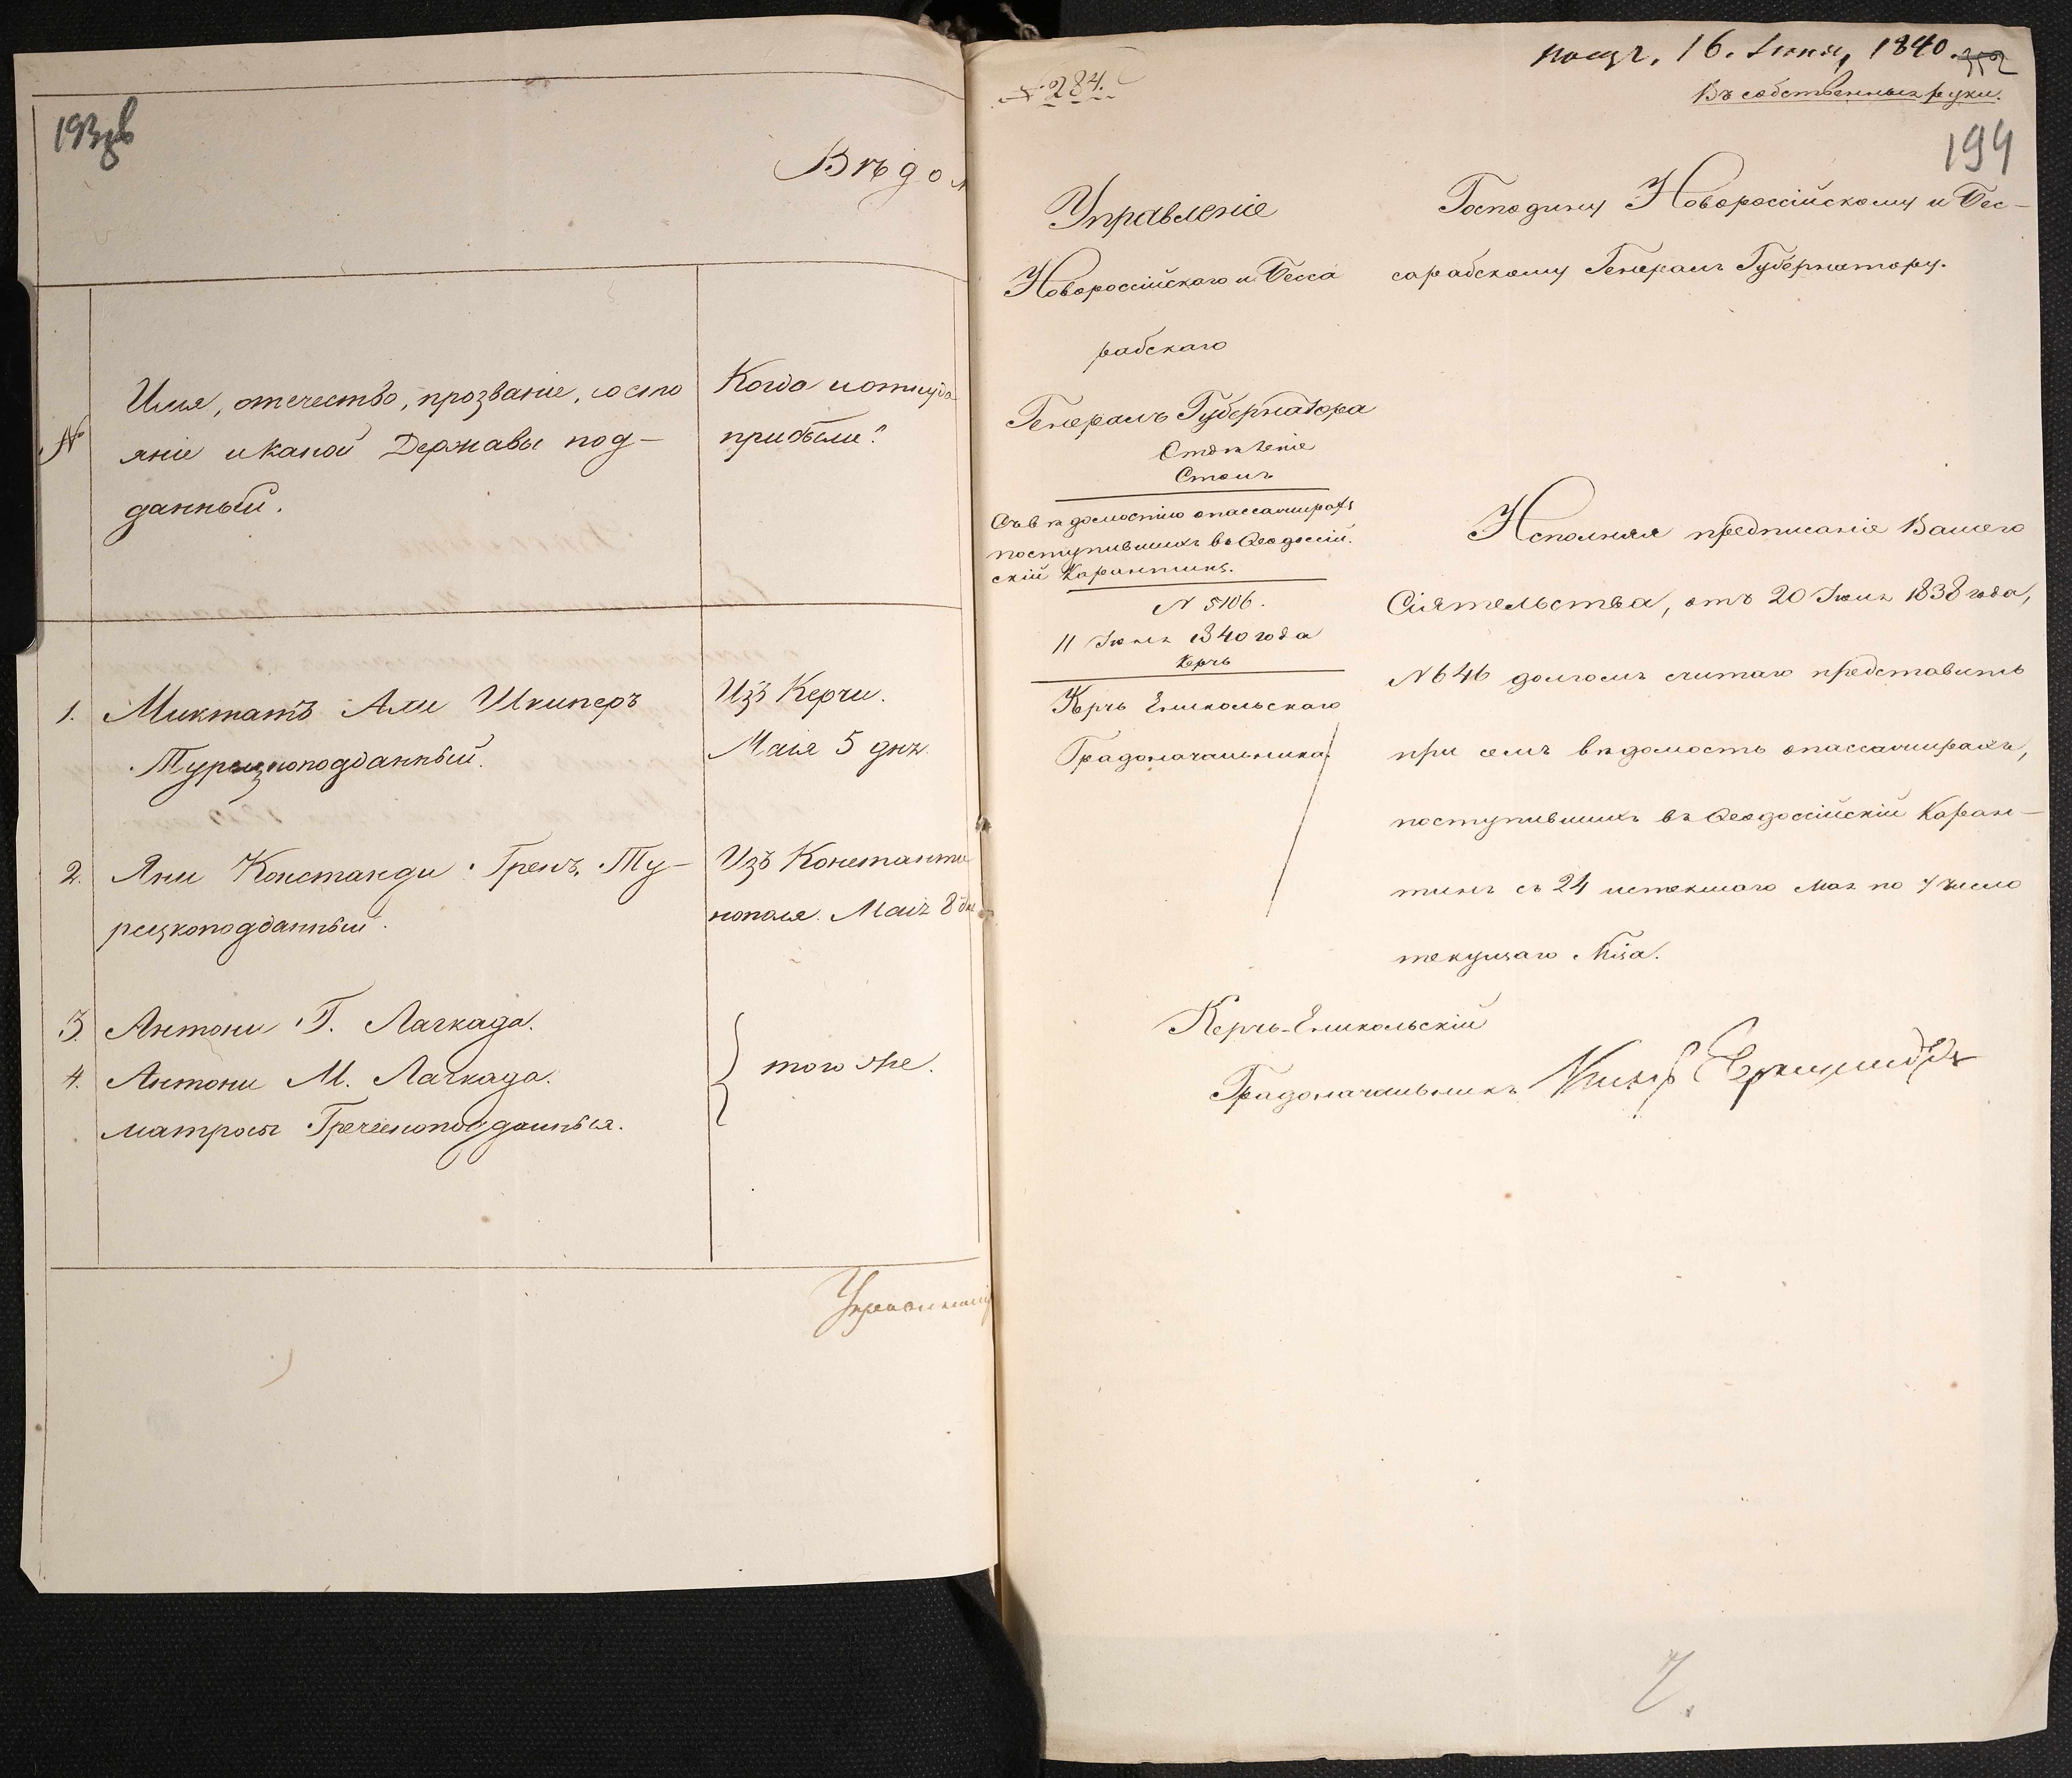 193об
Вѣдом
№
Имя, отечество, прозваніе, состо
яніе и какой Державы под-
данный.
Когда и откуда
прибыли?
1. Миктатъ Али Шкиперъ
Турецкоподданный.
Изъ Керчи.
Маія 5 дня.
2. Яни Констанди Грекъ, Ту-
рецкоподданный.
Изъ Константи
нополя. Маія 8 дня
3. Антони Г. Лагкада.
4. Антони М. Лагкада.
матросы Греческоподданныя.
того же.
Управляющ
№ 284.
получ. 16. Іюня, 1840.
Въ собственныя руки.
194
Управленіе
Новороссійскаго и Бесса
рабскаго
Генералъ Губернатора
Отдѣленіе
Столъ
Съ вѣдомостію о пассажирахъ
поступившихъ въ Ѳеодоссій-
скій Карантинъ.
№ 5106.
11 Іюня 1840 года
Керчь
Керчь Еникольскаго
Градоначальника.
Господину Новороссійскому и Бес-
сарабскому Генералъ Губернатору.
Исполняя предписаніе Вашего
Сіятельства, отъ 20 Іюля 1838 года,
№ 646 долгомъ считаю представить
при семъ вѣдомость о пассажирахъ,
поступившихъ въ Ѳеодоссійскій Каран-
тинъ съ 24 истекшаго Мая по 7 число
текущаго Мѣсяца.
Керчь-Еникольскій
Градоначальникъ Князь Херхеулидзевъ